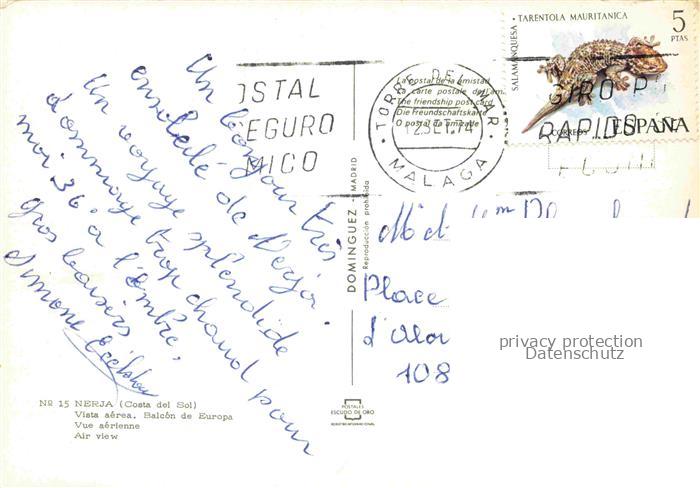 Un bonjour très
ensoleillé de Nerja.
Un voyage splendide
dommage trop chaud pour
moi 36° à l'ombre.
gros baisers
Simone
№ 15 NERJA (Costa del Sol)
Vista aérea. Balcón de Europa
Vue aérienne
Air view
OSTAL
EGURO
MICO
DOMINGUEZ - MADRID
Reproducción prohibida
POSTALES
ESCUDO DE ORO
La postal de la amistad
La carte postale de l'am
The friendship post card
Die Freundschaftskarte
O postal da amizade
TORRE DEL MAR
12 SET. 74
MALAGA
SALAMANQUESA · TARENTOLA MAURITANICA
5
PTAS
GIRO P
RAPIDO
CORREOS
ESPAÑA
M et
Place
d'
108
privacy protection
Datenschutz